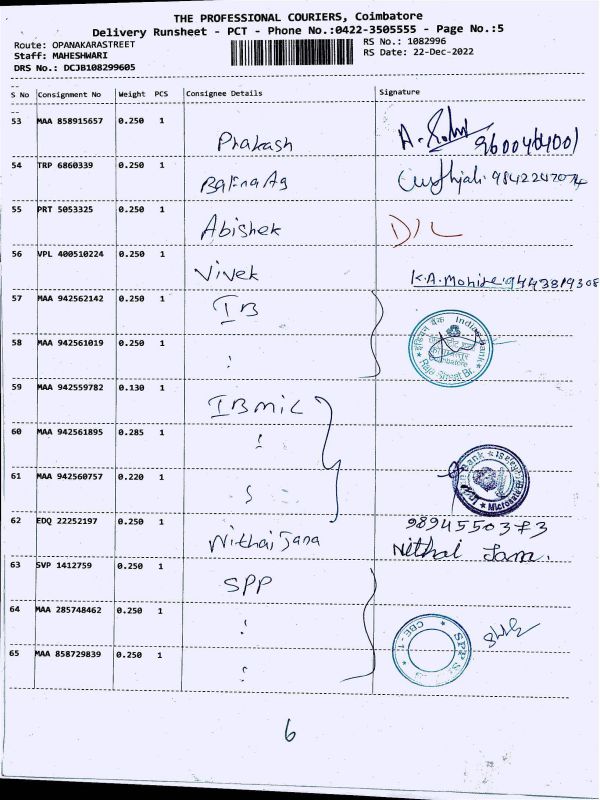 THE PROFESSIONAL COURIERS, Coimbatore
Delivery Runsheet - PCT - Phone No.:0422-3505555 - Page No.:5
Route: OPANAKARASTREET RS No.: 1082996
Staff: MAHESHWARI RS Date: 22-Dec-2022
DRS No.: DCJB108299605
S No Consignment No Weight PCS Consignee Details Signature
53 MAA 858915657 0.250 1 Prakash 9600464001
54 TRP 6860339 0.250 1 9842247074
55 PRT 5053325 0.250 1 Abishek D/L
56 VPL 400510224 0.250 1 Vivek K.A. 9443819308
57 MAA 942562142 0.250 1 IB
58 MAA 942561019 0.250 1 इंडियन बैंक Indian Bank
Coimbatore
Raja Street Br.
59 MAA 942559782 0.130 1 IBMIL
60 MAA 942561895 0.285 1
61 MAA 942560757 0.220 1 Bank
62 EDQ 22252197 0.250 1 Nithai Jana Nithai Jana.
63 SVP 1412759 0.250 1 SPP
64 MAA 285748462 0.250 1 CBE - 1
65 MAA 858729839 0.250 1
6